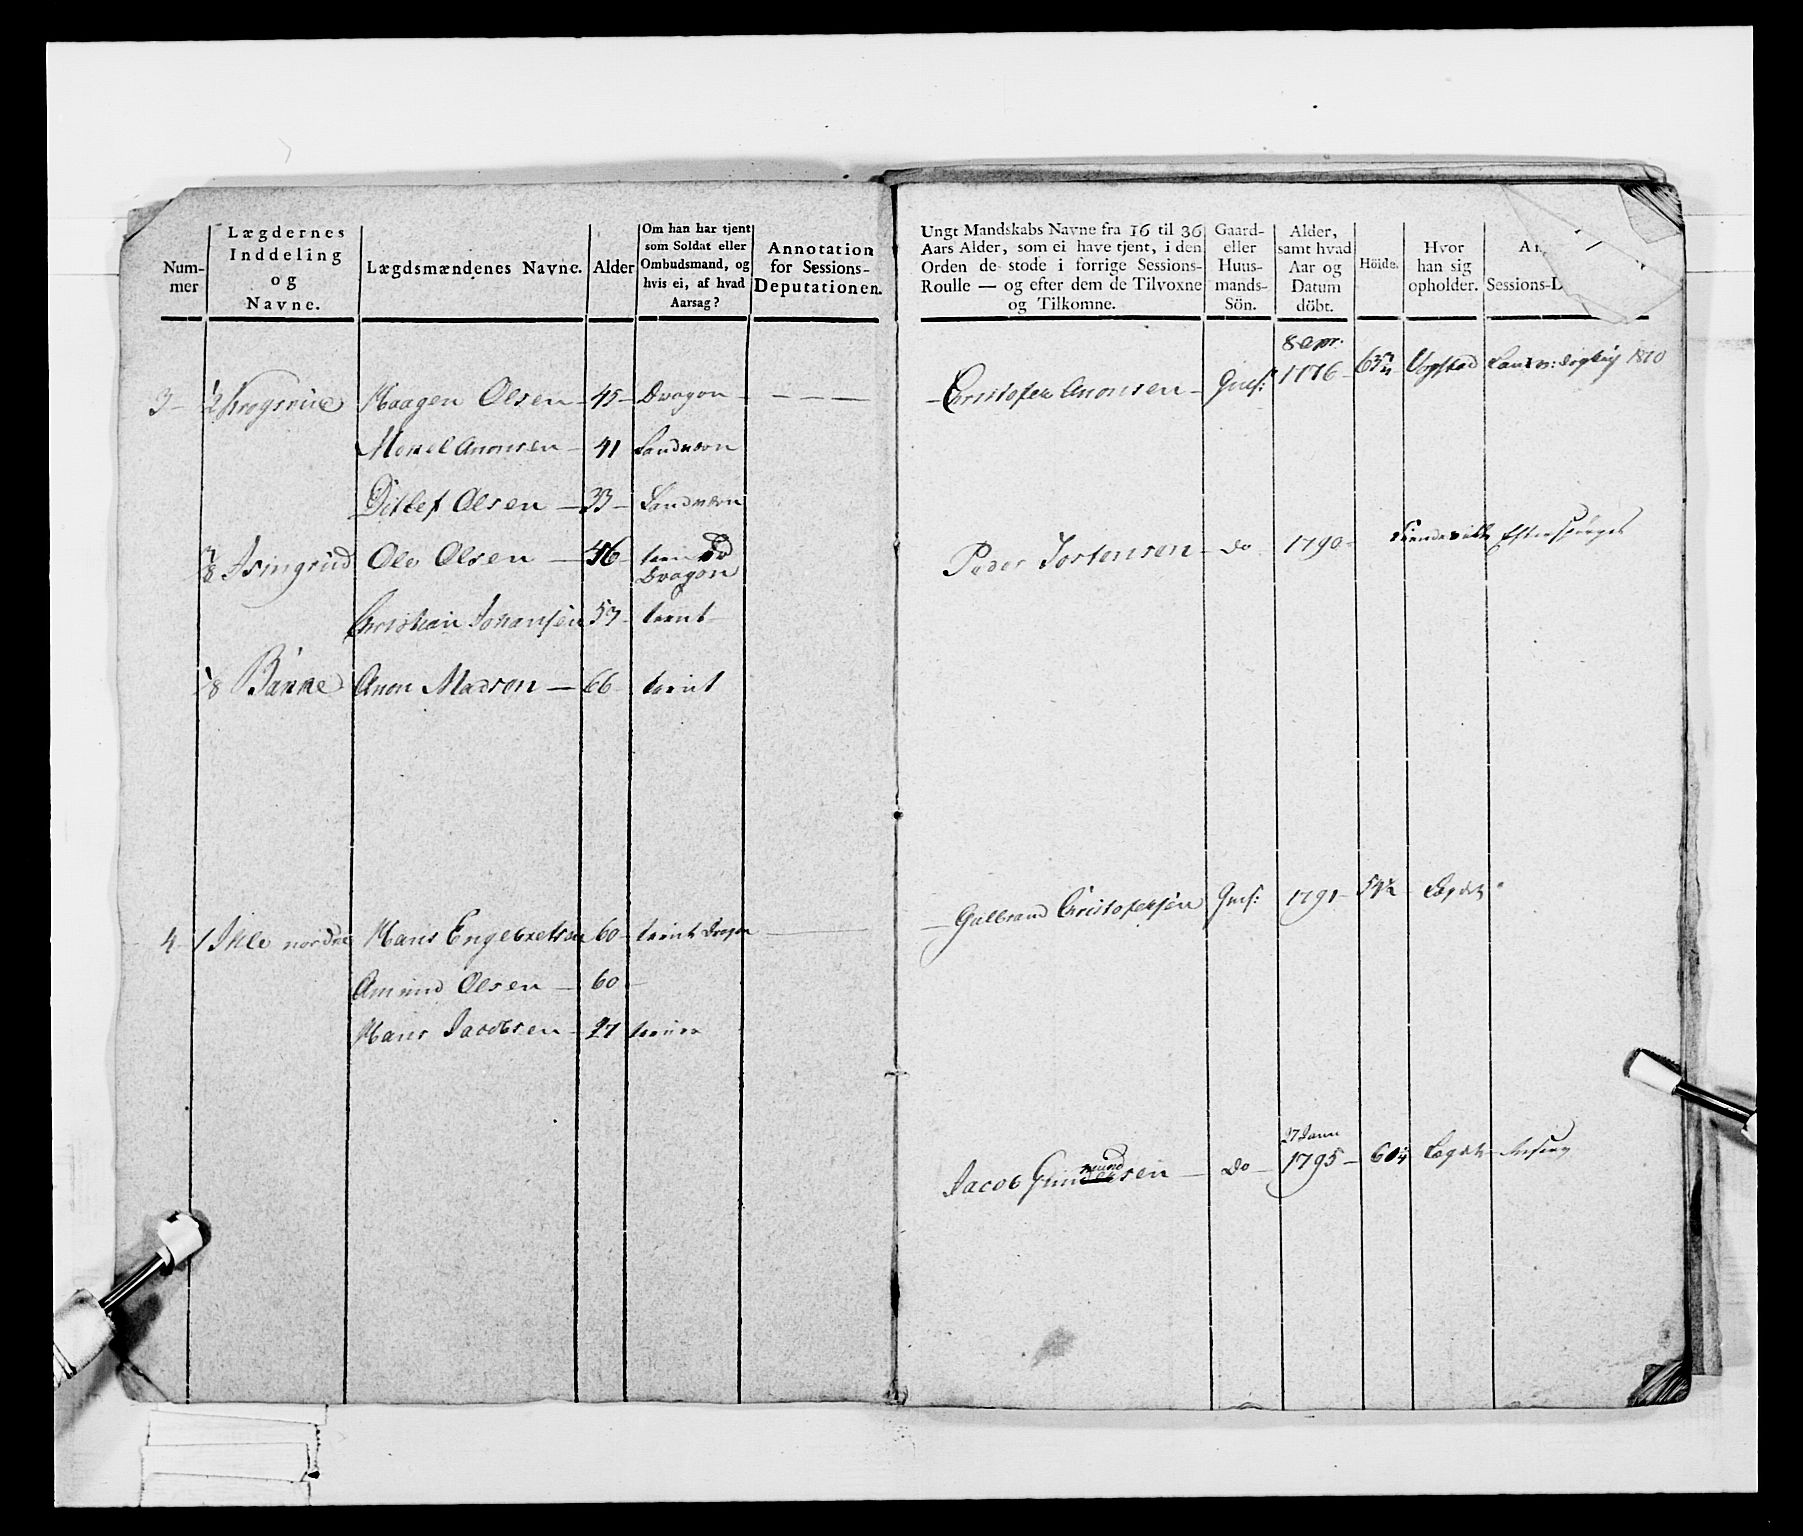 Num-
mer
Lægdernes
Inddeling
og
Navne.
Lægdsmændenes Navne.
Alder
Om han har tjent
som Soldat eller
Ombudsmand, og
hvis ei, af hvad
Aarsag?
Annotation
for Sessions-
Deputationen.
3 - 1/2 Krogsrüe Haagen Olsen - 45 - Dragon - - - -
Amonsen - 41 Landværn
Ditlef Olsen - 33 - Landværn
3/8 Isingrüd Ole Olsen - 46 - tient
Dragon
Christian Johansen 53 - tient
1/8 Banne Amon Madsen - 66 - tient
4 - 1 Ihle nordre Hans Engebretsen 60 - tient Dragon
Amund Olsen - 60 -
Hans Jacobsen - 27 tiener
Ungt Mandskabs Navne fra 16 til 36
Aars Alder, som ei have tjent, i den
Orden de stode i forrige Sessions-
Roulle — og efter dem de Tilvoxne
og Tilkomne.
Gaard-
eller
Huus-
mands-
Sön.
Alder,
samt hvad
Aar og
Datum
döbt.
Höide.
Hvor
han sig
opholder.
Sessions-D
8 Apr.
- Christofer Amonsen - Gmf: 1776 - 63 Vogstad 1810
Peder Tostensen - do 1790 - Efterspörges
- Gulbrand Christophersen Gmf: 1791 - Lægdet
27 Janu
mund
Jacob Gundersen - do - 1795 - 60 1/4 Lægdet